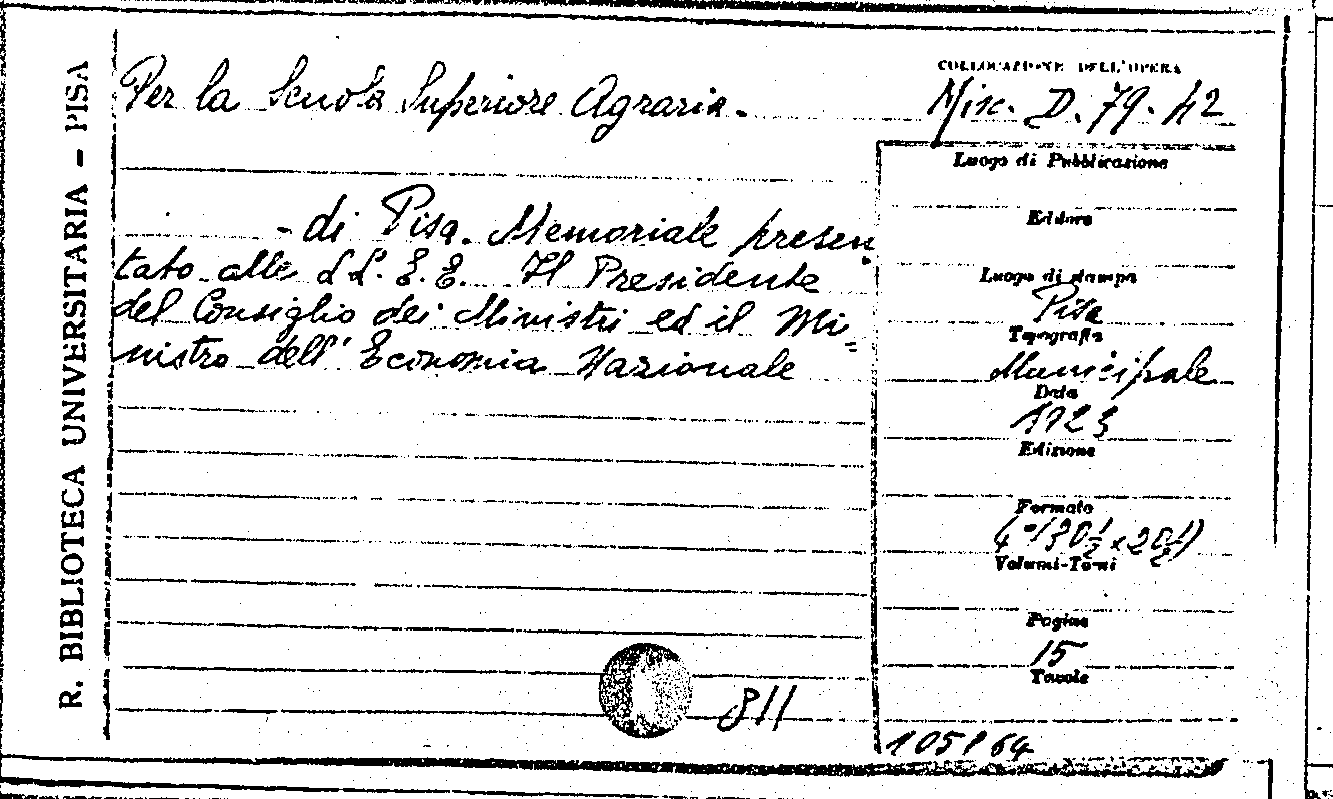 R. BIBLIOTECA UNIVERSITARIA – PISA
Per la Scuola Superiore Agraria.
- di Pisa. Memoriale presen-
tato alle LL. E. E. Il Presidente
del Consiglio dei Ministri ed il Mi=
nistro dell' Economia Nazionale
811
COLLOCAZIONE DELL'OPERA
Misc. D. 79. 42
Luogo di Pubblicazione
Editore
Luogo di stampa
Pisa
Tipografia
Municipale
Data
1923
Edizione
Formato
4° (30½ x 20½)
Volumi-Tomi
Pagine
15
Tavole